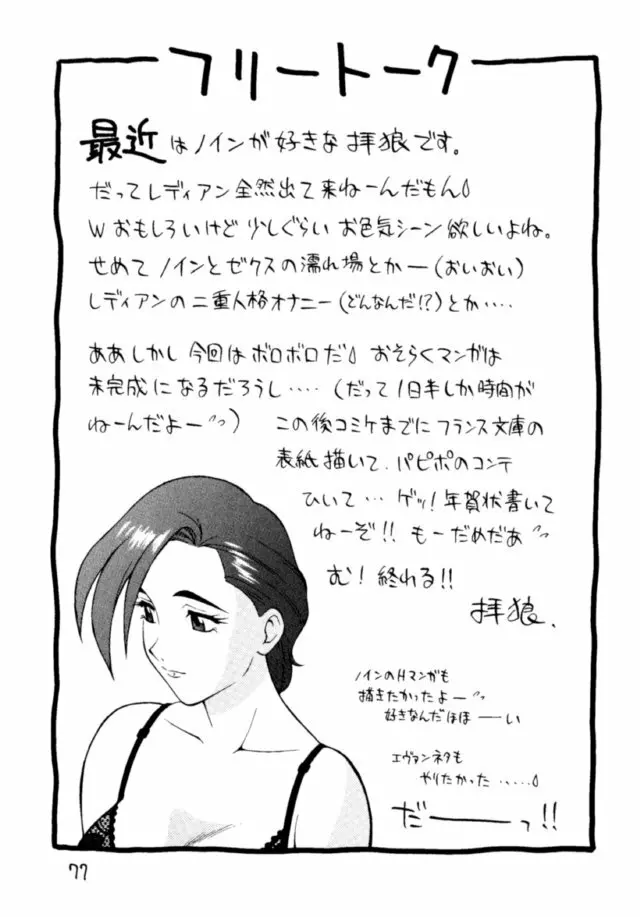 フリートーク
最近はノインが好きな拝狼です。
だってレディアン全然出て来ねーんだもん
Wおもしろいけど少しぐらいお色気シーン欲しいよね。
せめてノインとゼクスの濡れ場とかー(おいおい)
レディアンの二重人格オナニー(どんなんだ!?)とか‥‥
ああしかし今回はボロボロだ おそらくマンガは
未完成になるだろうし‥‥(だって1日半しか時間が
ねーんだよー)
この後コミケまでにフランス文庫の
表紙描いて、パピポのコンテ
ひいて…ゲッ!年賀状書いて
ねーぞ!!もーだめだぁ
む!終れる!!
拝狼、
ノインのHマンガも
描きたかったよー
好きなんだほほーい
エヴァンネタも
やりたかった‥‥‥
だーーっ!!
77